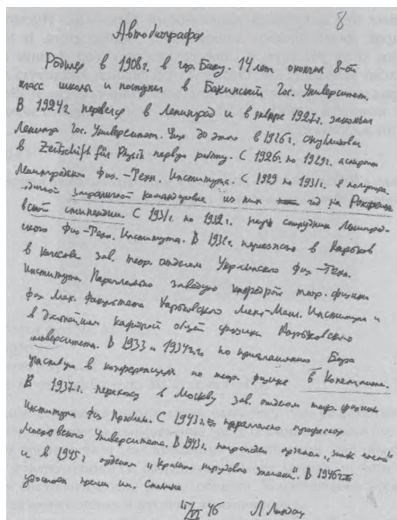 8
Автобиография
Родился в 1908 г. в гор. Баку. 14 лет окончил 8-ой
класс школы и поступил в Бакинский Гос. Университет.
В 1924 г. перевелся в Ленинград и в январе 1927 г. закончил
Ленингр. Гос. Университет. Уже до этого в 1926 г. опубликовал
в Zeitschrift für Physik первую работу. С 1926 г. по 1929 г. аспирант
Ленинградского Физ.-Техн. Института. С 1929 по 1931 г. в полутора-
годичной заграничной командировке из них год на Рокфелле-
вской стипендии. С 1931 г. по 1932 г. научн. сотрудник Ленинград-
ского Физ.-Техн. Института. В 1932 г. переехал в Харьков
в качестве зав. теор. отделом Украинского Физ.-Техн.
Института. Параллельно заведую кафедрой теор. физики
физ. мех. факультета Харьковского Мех.-Маш. Института и
в дальнейшем кафедрой общей физики Харьковского
университета. В 1933 и 1934 г.г. по приглашению Бора
участвую в конференции по теор. физике в Копенгагене.
В 1937 г. перехожу в Москву зав. отделом теор. физики
Института Физ. Проблем. С 1943 г. профессор
Московского Университета. В 1943 г. награжден орденом „Знак почета"
и в 1945 г. орденом „Красного трудового знамени". В 1946 г.
удостоен премии им. Сталина
46 Л Ландау